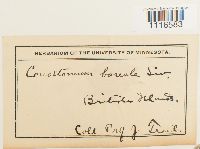 1116583
HERBARIUM OF THE UNIVERSITY OF MINNESOTA.
Conostomum boreale Sw.
British Islands.
Coll. Prof. J.